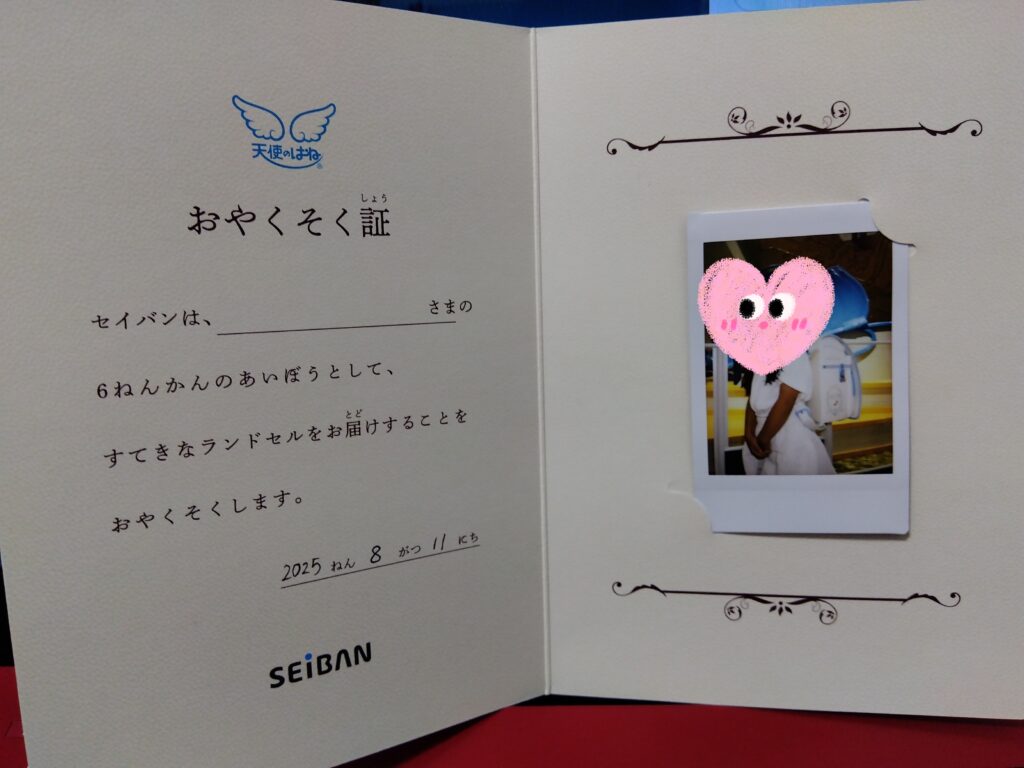 天使のはね®
おやくそく証
しょう
セイバンは、 さまの
6ねんかんのあいぼうとして、
すてきなランドセルをお届けすることを
とど
おやくそくします。
2025 ねん 8 がつ 11 にち
SEiBAN